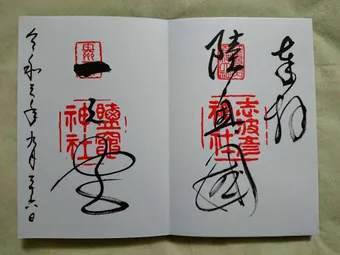 奉拝
陸奥國
志波彦
神社
一之宮
鹽竈
神社
令和三年九月二十六日